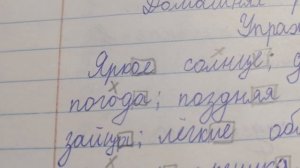 Домашняя
Упраж
Яркое солнце; д
погода; поздняя
зайца; лёгкие об